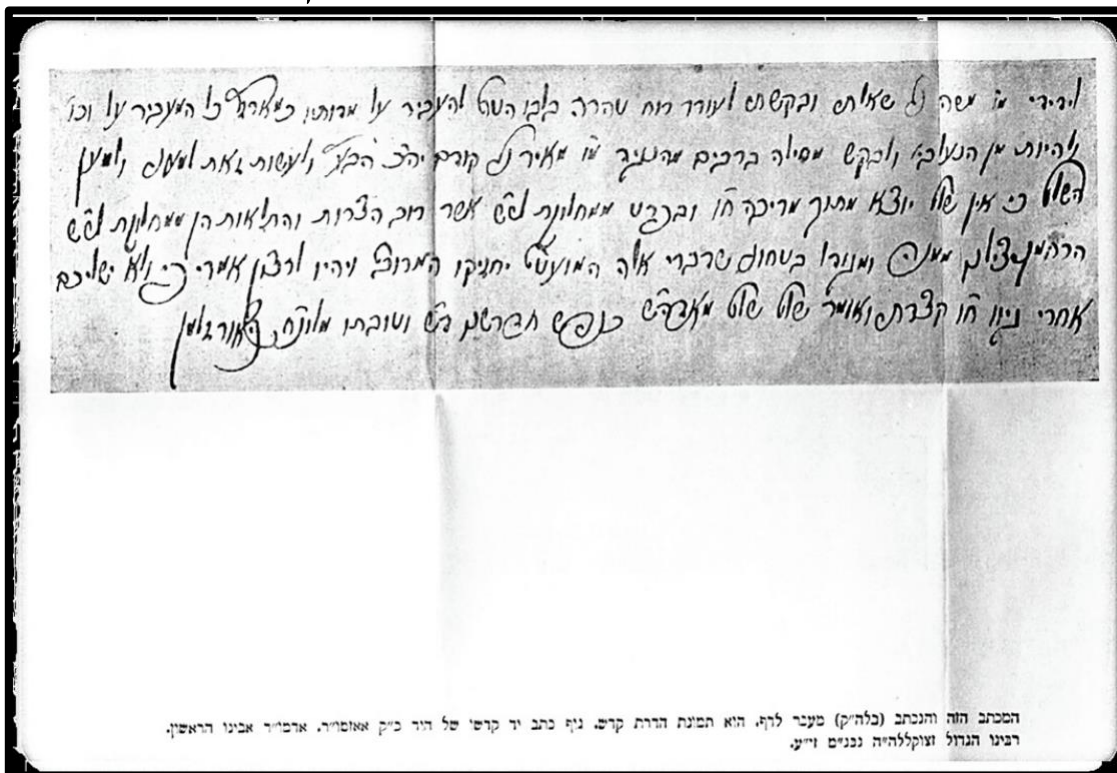 לידידי מו' משה נ"י שאלתי ובקשתי לעורר רוח טהרה בלבו הטוב להעביר על מדותיו כמארז"ל כל המעביר על וכו'
ולהיות מן הנעלבי' ולבקש מחילה ברבים מהנגיד מו' מאיר נ"י קודם יה"כ ולעשות זאת למעני ולמען
השלום כי אין שלום יוצא מתוך מריבה ח"ו ובפרט ממחלוקת לש"ש אשר רוב הצרות והתלאות הן ממחלוקת לש"ש
הרחמן יצילנו ממנה ומנורא בטחוני שדברי אלה המועטים יחזיקו המרובה ויהיו לרצון אמרי פי ולא ישליכם
אחרי גיוו ח"ו קצרתי ואומר שלום שלום מאדה"ש כנפש ודורש טובתו
המכתב הזה והנכתב (בלה"ק) מעבר לדף, הוא תמונת הדרת קדש, גוף כתב יד קדשו של היד כ"ק אאזמו"ר, אדמו"ר אבינו הראשון,
רבינו הגדול זצוקללה"ה נבג"מ זי"ע.